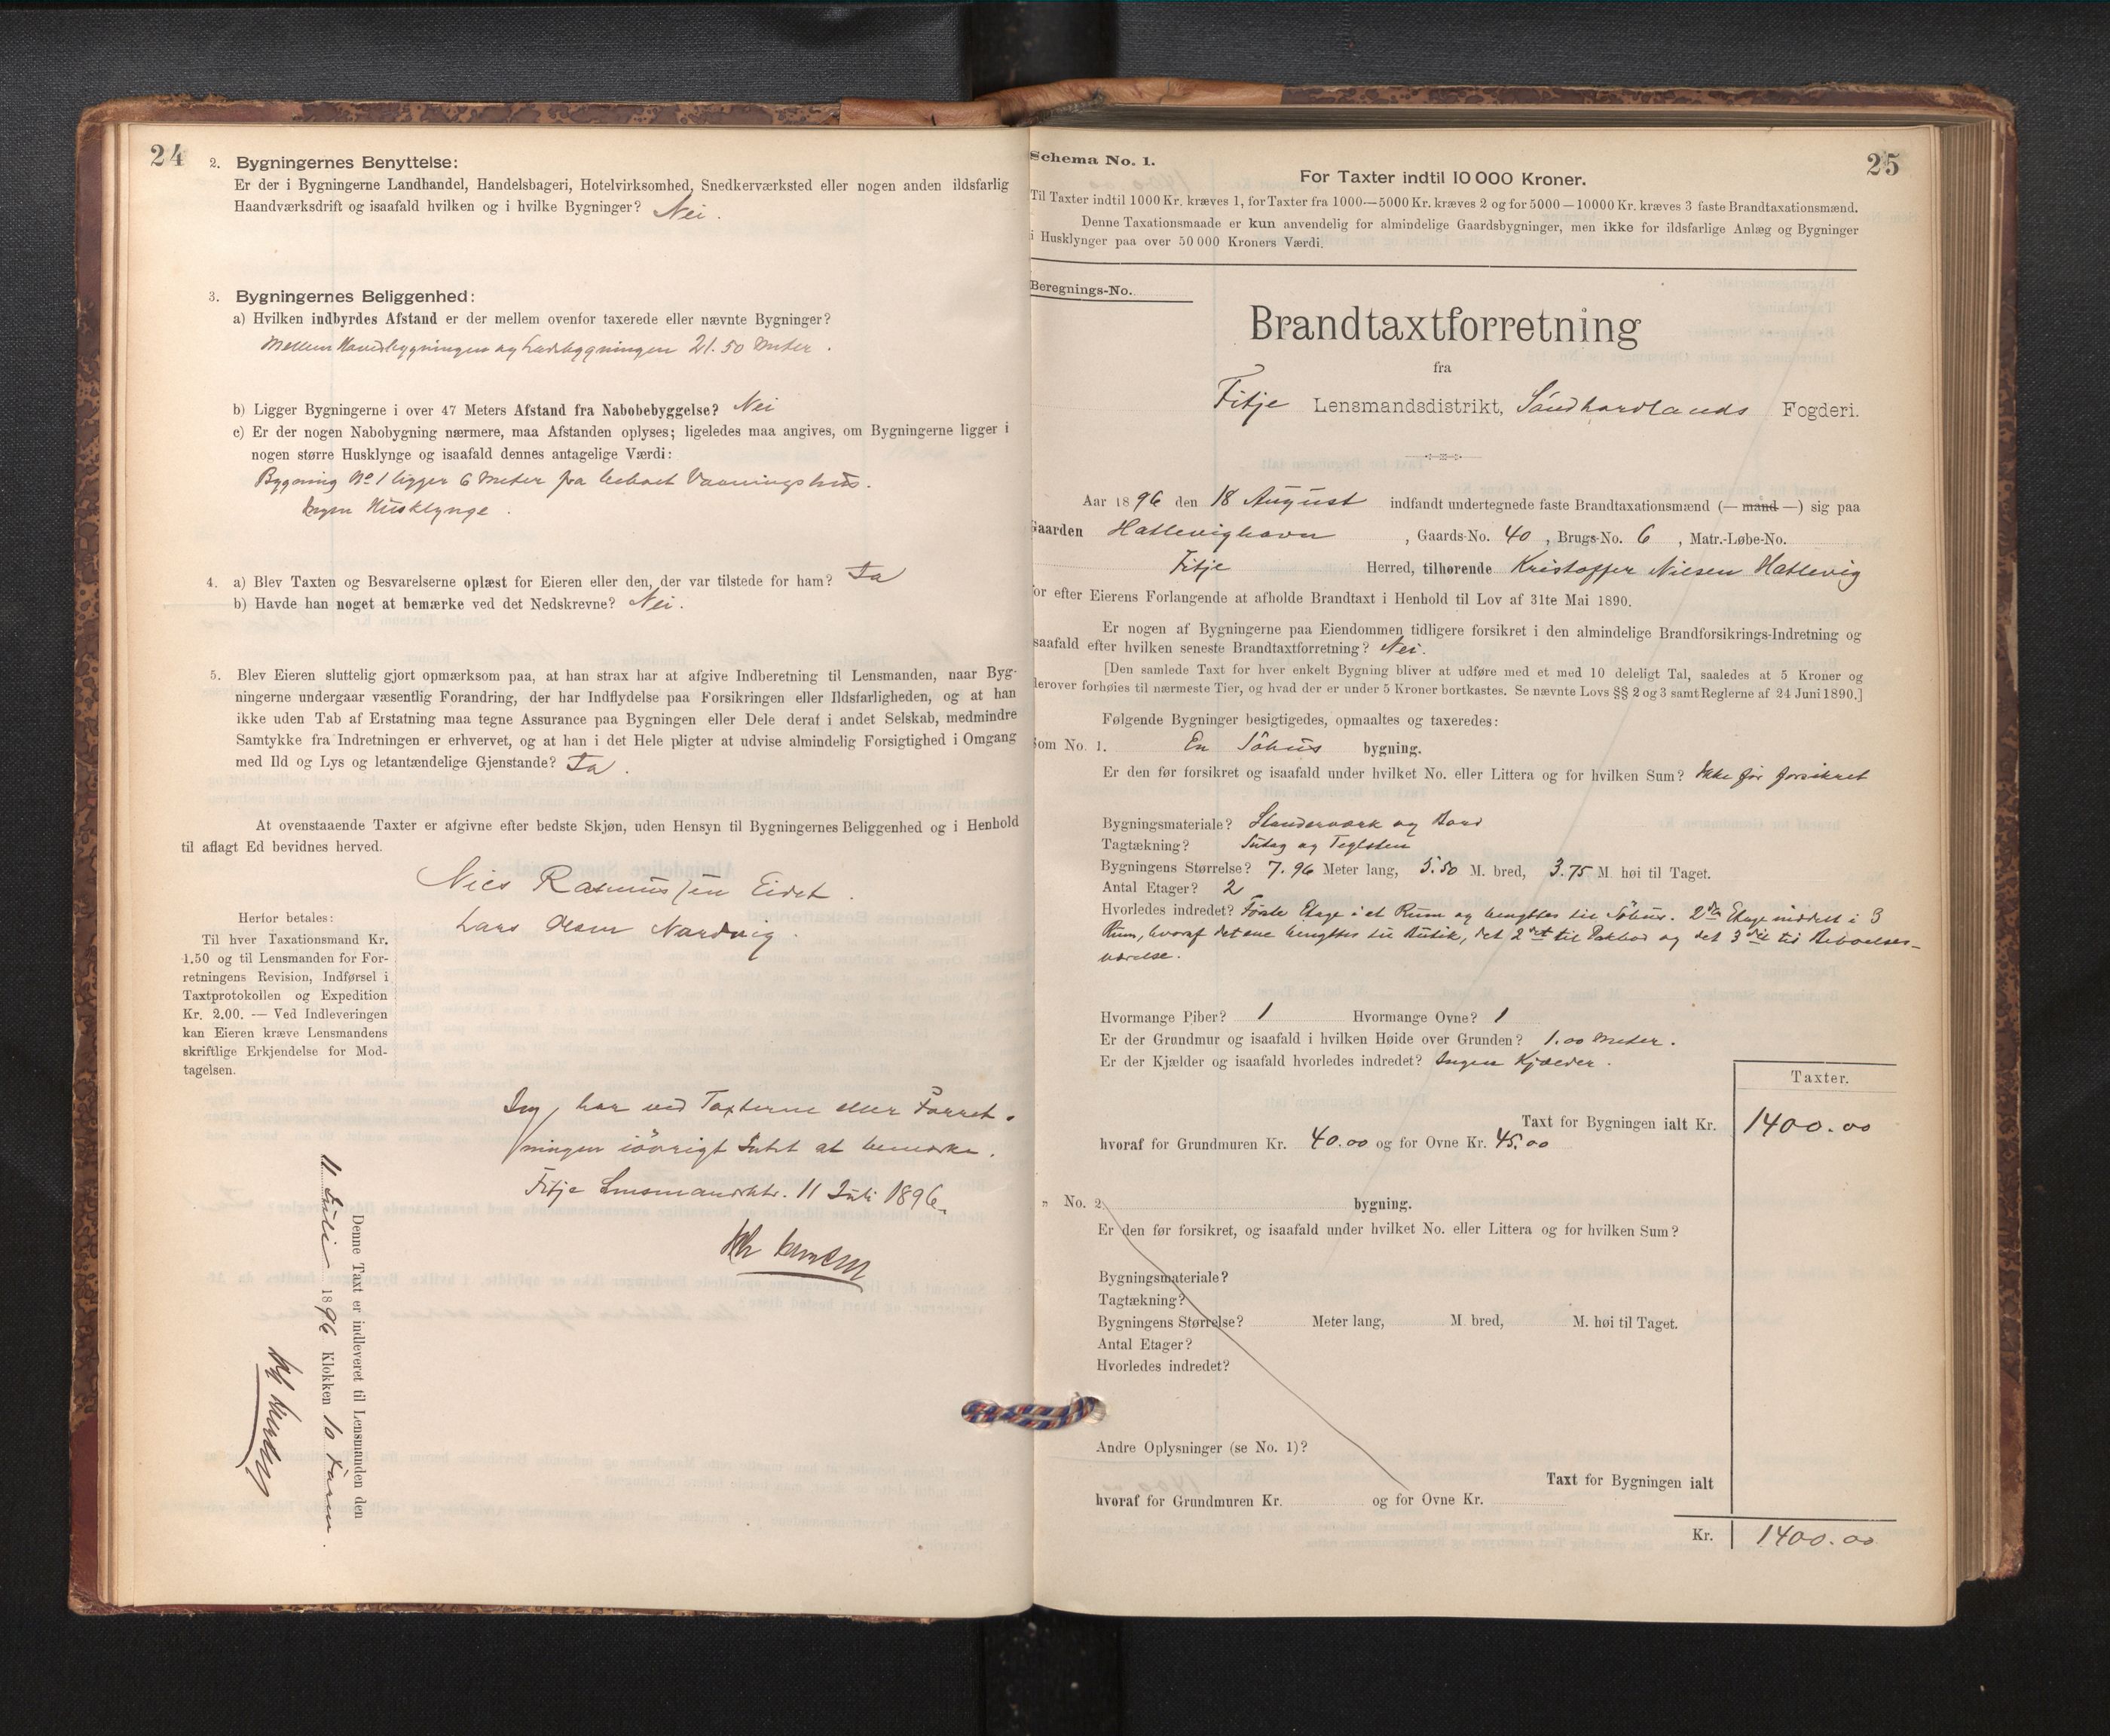 24
2. Bygningernes Benyttelse:
Er der i Bygningerne Landhandel, Handelsbageri, Hotelvirksomhed, Snedkerværksted eller nogen anden ildsfarlig
Haandværksdrift og isaafald hvilken og i hvilke Bygninger? Nei.
3. Bygningernes Beliggenhed:
a) Hvilken indbyrdes Afstand er der mellem ovenfor taxerede eller nævnte Bygninger?
Mellem Hovedbygningen og Ladebygningen 21.50 Meter.
b) Ligger Bygningerne i over 47 Meters Afstand fra Nabobebyggelse? Nei
c) Er der nogen Nabobygning nærmere, maa Afstanden oplyses; ligeledes maa angives, om Bygningerne ligger i
nogen større Husklynge og isaafald dennes antagelige Værdi:
Bygning No 1 ligger 6 Meter fra beboet Vaaningshus.
Ingen Husklynge.
4. a) Blev Taxten og Besvarelserne oplæst for Eieren eller den, der var tilstede for ham? Ja
b) Havde han noget at bemærke ved det Nedskrevne? Nei.
5. Blev Eieren sluttelig gjort opmærksom paa, at han strax har at afgive Indberetning til Lensmanden, naar Byg-
ningerne undergaar væsentlig Forandring, der har Indflydelse paa Forsikringen eller Ildsfarligheden, og at han
ikke uden Tab af Erstatning maa tegne Assurance paa Bygningen eller Dele deraf i andet Selskab, medmindre
Samtykke fra Indretningen er erhvervet, og at han i det Hele pligter at udvise almindelig Forsigtighed i Omgang
med Ild og Lys og letantændelige Gjenstande? Ja.
At ovenstaaende Taxter er afgivne efter bedste Skjøn, uden Hensyn til Bygningernes Beliggenhed og i Henhold
til aflagt Ed bevidnes herved.
Niels Rasmussen Eidet.
Lars Olsen Nordvig.
Herfor betales:
Til hver Taxationsmand Kr.
1.50 og til Lensmanden for For-
retningens Revision, Indførsel i
Taxtprotokollen og Expedition
Kr. 2.00. — Ved Indleveringen
kan Eieren kræve Lensmandens
skriftlige Erkjendelse for Mod-
tagelsen.
Jeg har ved Taxterne eller Forret-
ningen iøvrigt Intet at bemærke.
Fitje Lensmandsktr. 11 Juli 1896.
Denne Taxt er indleveret til Lensmanden den
11 Juli 1896 Klokken 10 Form.
25
Schema No. 1.
For Taxter indtil 10 000 Kroner.
Til Taxter indtil 1000 Kr. kræves 1, for Taxter fra 1000—5000 Kr. kræves 2 og for 5000—10000 Kr. kræves 3 faste Brandtaxationsmænd.
Denne Taxationsmaade er kun anvendelig for almindelige Gaardsbygninger, men ikke for ildsfarlige Anlæg og Bygninger
i Husklynger paa over 50 000 Kroners Værdi.
Beregnings-No.
Brandtaxtforretning
fra
Fitje Lensmandsdistrikt, Søndhordlands Fogderi.
Aar 1896 den 18 August indfandt undertegnede faste Brandtaxationsmænd (— mand —) sig paa
Gaarden Hatlevighavn, Gaards-No. 40, Brugs-No. 6, Matr.-Løbe-No.
Fitje Herred, tilhørende Kristoffer Nilsen Hatlevig
for efter Eierens Forlangende at afholde Brandtaxt i Henhold til Lov af 31te Mai 1890.
Er nogen af Bygningerne paa Eiendommen tidligere forsikret i den almindelige Brandforsikrings-Indretning og
isaafald efter hvilken seneste Brandtaxtforretning? Nei.
[Den samlede Taxt for hver enkelt Bygning bliver at udføre med et med 10 deleligt Tal, saaledes at 5 Kroner og
derover forhøies til nærmeste Tier, og hvad der er under 5 Kroner bortkastes. Se nævnte Lovs §§ 2 og 3 samt Reglerne af 24 Juni 1890.]
Følgende Bygninger besigtigedes, opmaaltes og taxeredes:
Som No. 1. En Söhus bygning.
Er den før forsikret og isaafald under hvilket No. eller Littera og for hvilken Sum? Ikke før forsikret
Bygningsmateriale? Standerværk og Bord
Tagtækning? Sutag og Teglsten
Bygningens Størrelse? 7.96 Meter lang, 5.50 M. bred, 3.75 M. høi til Taget.
Antal Etager? 2
Hvorledes indredet? Første Etage i et Rum og benyttes til Söhus. 2den Etage inddelt i 3
Rum, hvoraf det ene benyttes til Butik, det 2det til Pakbod og det 3die til Beboelses-
værelse.
Hvormange Piber? 1 Hvormange Ovne? 1
Er der Grundmur og isaafald i hvilken Høide over Grunden? 1.00 Meter.
Er der Kjælder og isaafald hvorledes indredet? Ingen Kjælder.
Taxter.
Taxt for Bygningen ialt Kr. 1400.00
hvoraf for Grundmuren Kr. 40.00 og for Ovne Kr. 45.00
„ No. 2 bygning.
Er den før forsikret, og isaafald under hvilket No. eller Littera og for hvilken Sum?
Bygningsmateriale?
Tagtækning?
Bygningens Størrelse? Meter lang, M. bred, M. høi til Taget.
Antal Etager?
Hvorledes indredet?
Andre Oplysninger (se No. 1)?
Taxt for Bygningen ialt
hvoraf for Grundmuren Kr. og for Ovne Kr.
Kr. 1400.00